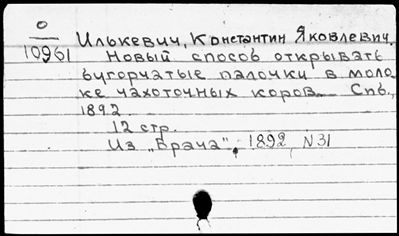 О
10961
Илькевич, Константин Яковлевич.
Новый способ открывать
бугорчатые палочки в моло-
ке чахоточных коров. Спб.,
1892.
12 стр.
Из „Врача", 1892, N31